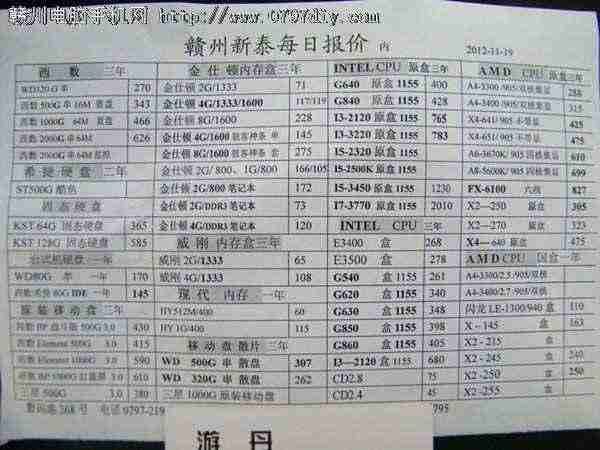 赣州电脑手机网 http://www.0797diy.com
赣州新泰每日报价 内
2012-11-19
西 数 三年
WD320G串 270
西数 500G串 16M 蓝盘 343
西数 1000G 64M 蓝盘 466
西数 2000G串 64M 626
西数 2000G串 64M
希捷硬盘 二年
ST500G 酷鱼
固态硬盘
KST 64G 固态硬盘 365
KST 128G 固态硬盘 585
台式机硬盘 一年
WD80G 串 一年 170
80G IDE 一年 145
原装移动盘 三年
500G 3.0 430
西数 Element 500G 415
西数 Element 1000G 590
1000G 3.0 610
三星 500G 3.0 380
金仕顿内存盒三年
金仕顿 2G/1333 71
金仕顿 4G/1333/1600 117/119
金仕顿 8G/1600 228
金仕顿 4G/1600 骇客神条 单 145
金仕顿 8G/1600 骇客神条 套 275
金仕顿 2G/800、1G/800 166/105
金仕顿 2G/800 笔记本 172
金仕顿 2G/DDR3 笔记本 73
金仕顿 4G/DDR3 笔记本 120
威刚 内存盒三年
威刚 2G/1333 65
威刚 4G/1333 108
现代 内存 一年
HY512M/400 60
HY 1G/400 115
移动盘散片 三年
WD 500G串 散盘 307
WD 320G串 散盘 262
三星 1000G 原装移动盘
INTEL CPU 原盒三年
G640 原盒 1155 400
G840 原盒 1155 428
I3-2120 原盒 1155 765
I3-3220 原盒 1155 783
I5-2320 原盒 1155
I5-2500K 原盒 1155
I5-3450 原盒 1155 1230
I7-3770 原盒 1155 2010
INTEL CPU 三年
E3400 盒 268
E3500 盒 278
G540 盒 1155 261
G620 盒 1155 340
G630 盒 1155 348
G850 盒 1155 398
G860 盒 1155 405
I3—2120 盒 1155 680
CD2.8 75
CD2.4 45
AMD CPU 原盒三年
A4-3300/905/双核集显 288
A4-3400/905/双核集显 315
X4-641/ 905 不带显 425
X4-651/ 905 不带显 475
A6-3670K/ 905 四核集显 610
A8-5600K/ 905 四核集显 699
FX-6100 六核 827
X2—250 原盒 305
X2—270 原盒 323
X4—640 原盒 475
AMD CPU 国盒一年
A4-3300/2.5 /905/双核
A4-3400/2.7 /905/双核
闪龙 LE-1300/940 盒 110
X－145 盒 163
X2 -215 盒
X2 -245 盒 240
X2 -250 盒 250
X2 -255 盒
数码港268号 电话 0797-219
795
游 丹